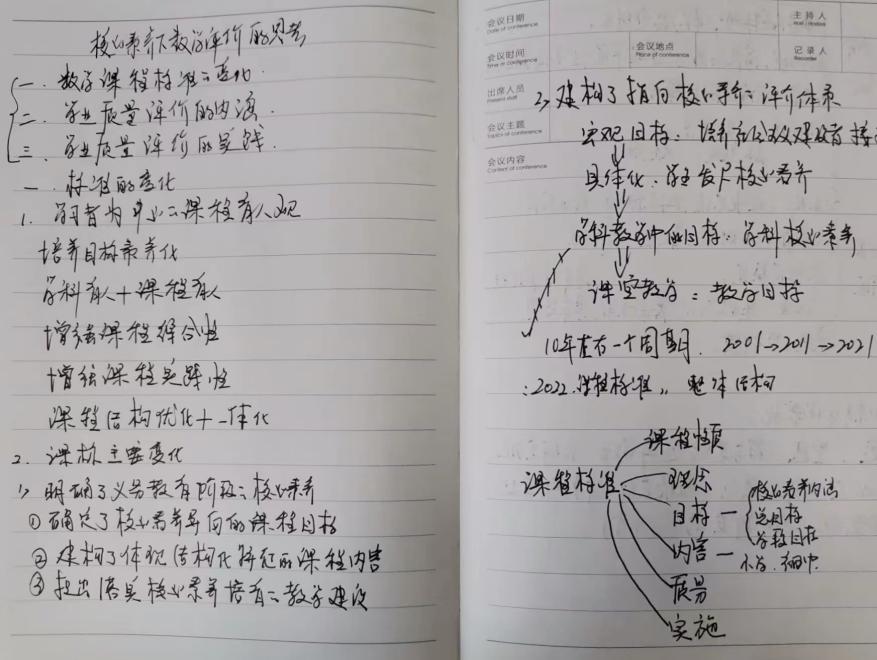 核心素养下教学评价的思考
一、数学课程标准之变化
二、学业质量评价的内涵
三、学业质量评价的实践
一、标准的变化
1. 学习者为中心之课程育人观
培养目标素养化
学科育人+课程育人
增强课程综合性
增强课程实践性
课程结构优化+一体化
2. 课标主要变化
1) 明确了义务教育阶段之核心素养
①确定了核心素养导向的课程目标
②建构了体现结构化特征的课程内容
③提出落实核心素养培育之教学建议
会议日期
Date of conference
主持人
会议时间
Time of conference
会议地点
Place of conference
记录人
Recorder
出席人员
会议主题
Topics of conference
会议内容
Content of conference
2) 建构了指向核心素养之评价体系
宏观目标：培养社会主义建设者接
具体化：学生发展核心素养
学科教学中的目标：学科核心素养
课堂教学：教学目标
10年左右一个周期 2001→2011→2021
:2022.课程标准,, 整体结构
课程标准
课程性质
理念
目标 — 核心素养内涵
总目标
学段目标
内容 —
质量
实施